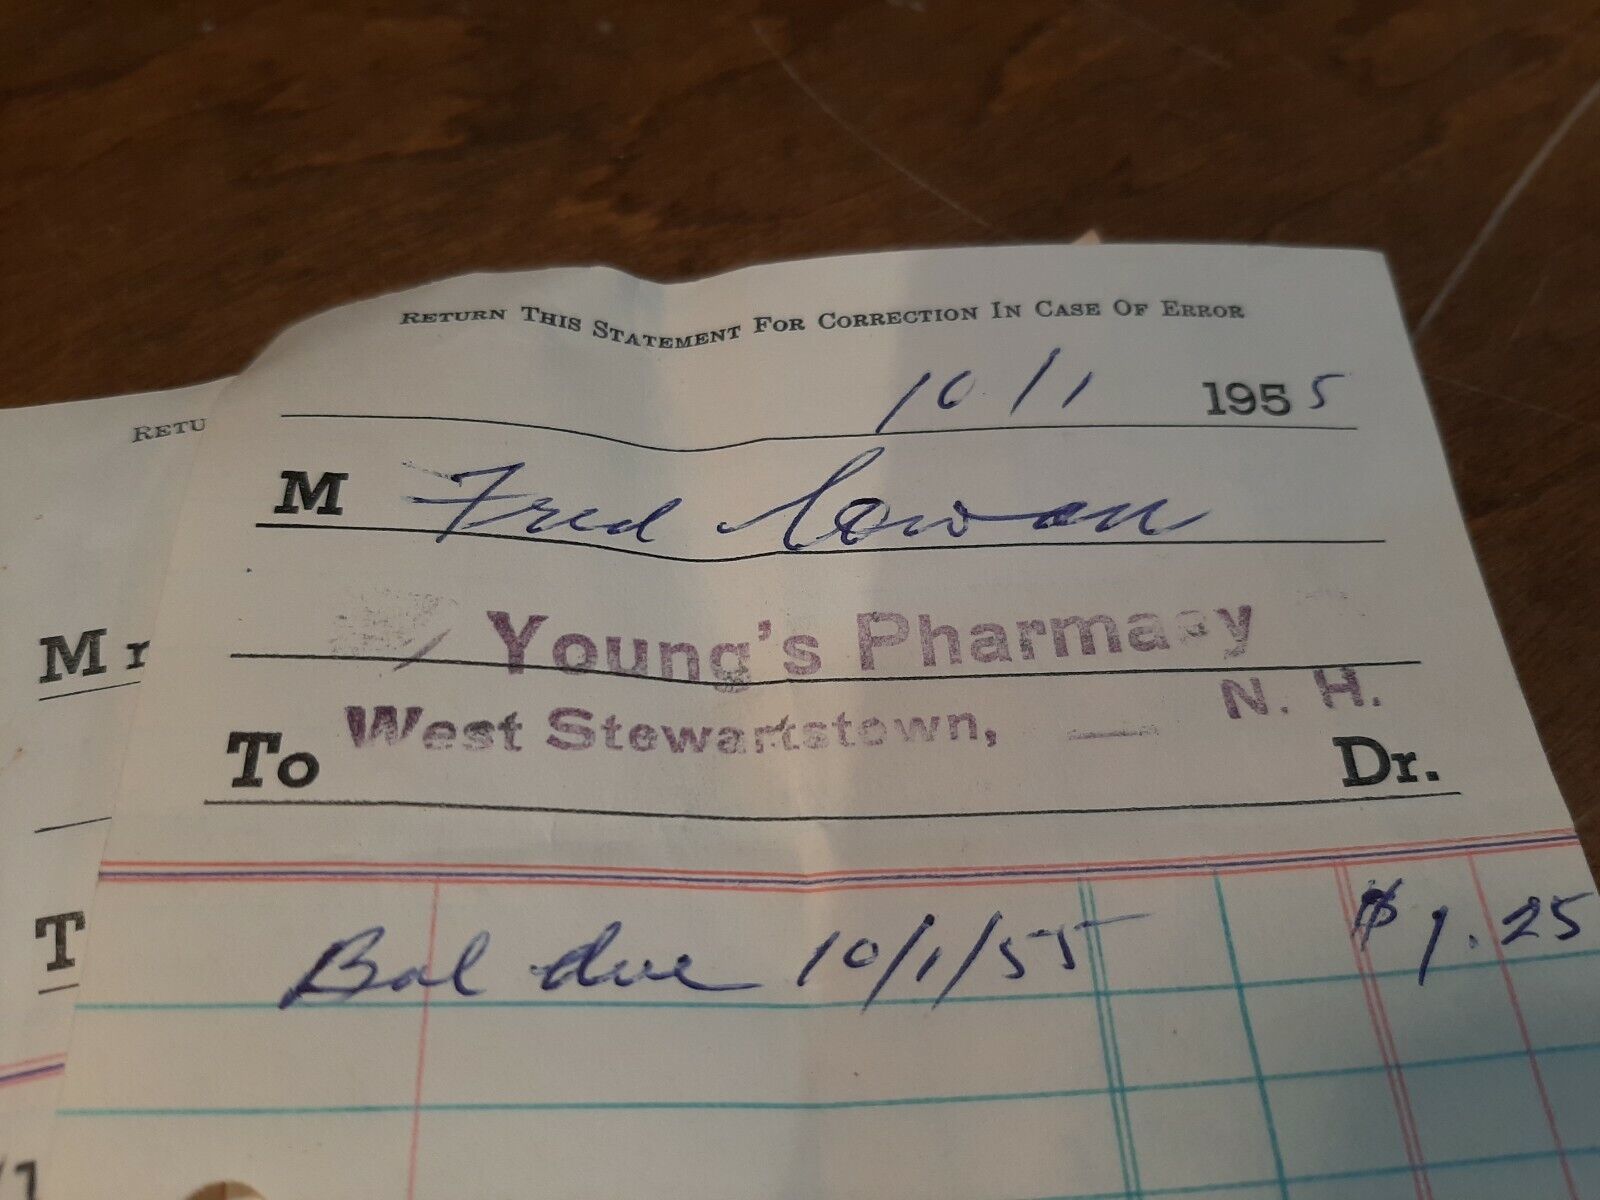 RETURN THIS STATEMENT FOR CORRECTION IN CASE OF ERROR
10/1 1955
M Fred Cowan
Young's Pharmacy
West Stewartstown, N. H.
To Dr.
Bal due 10/1/55 $1.25
RETU
Mr
T
/1